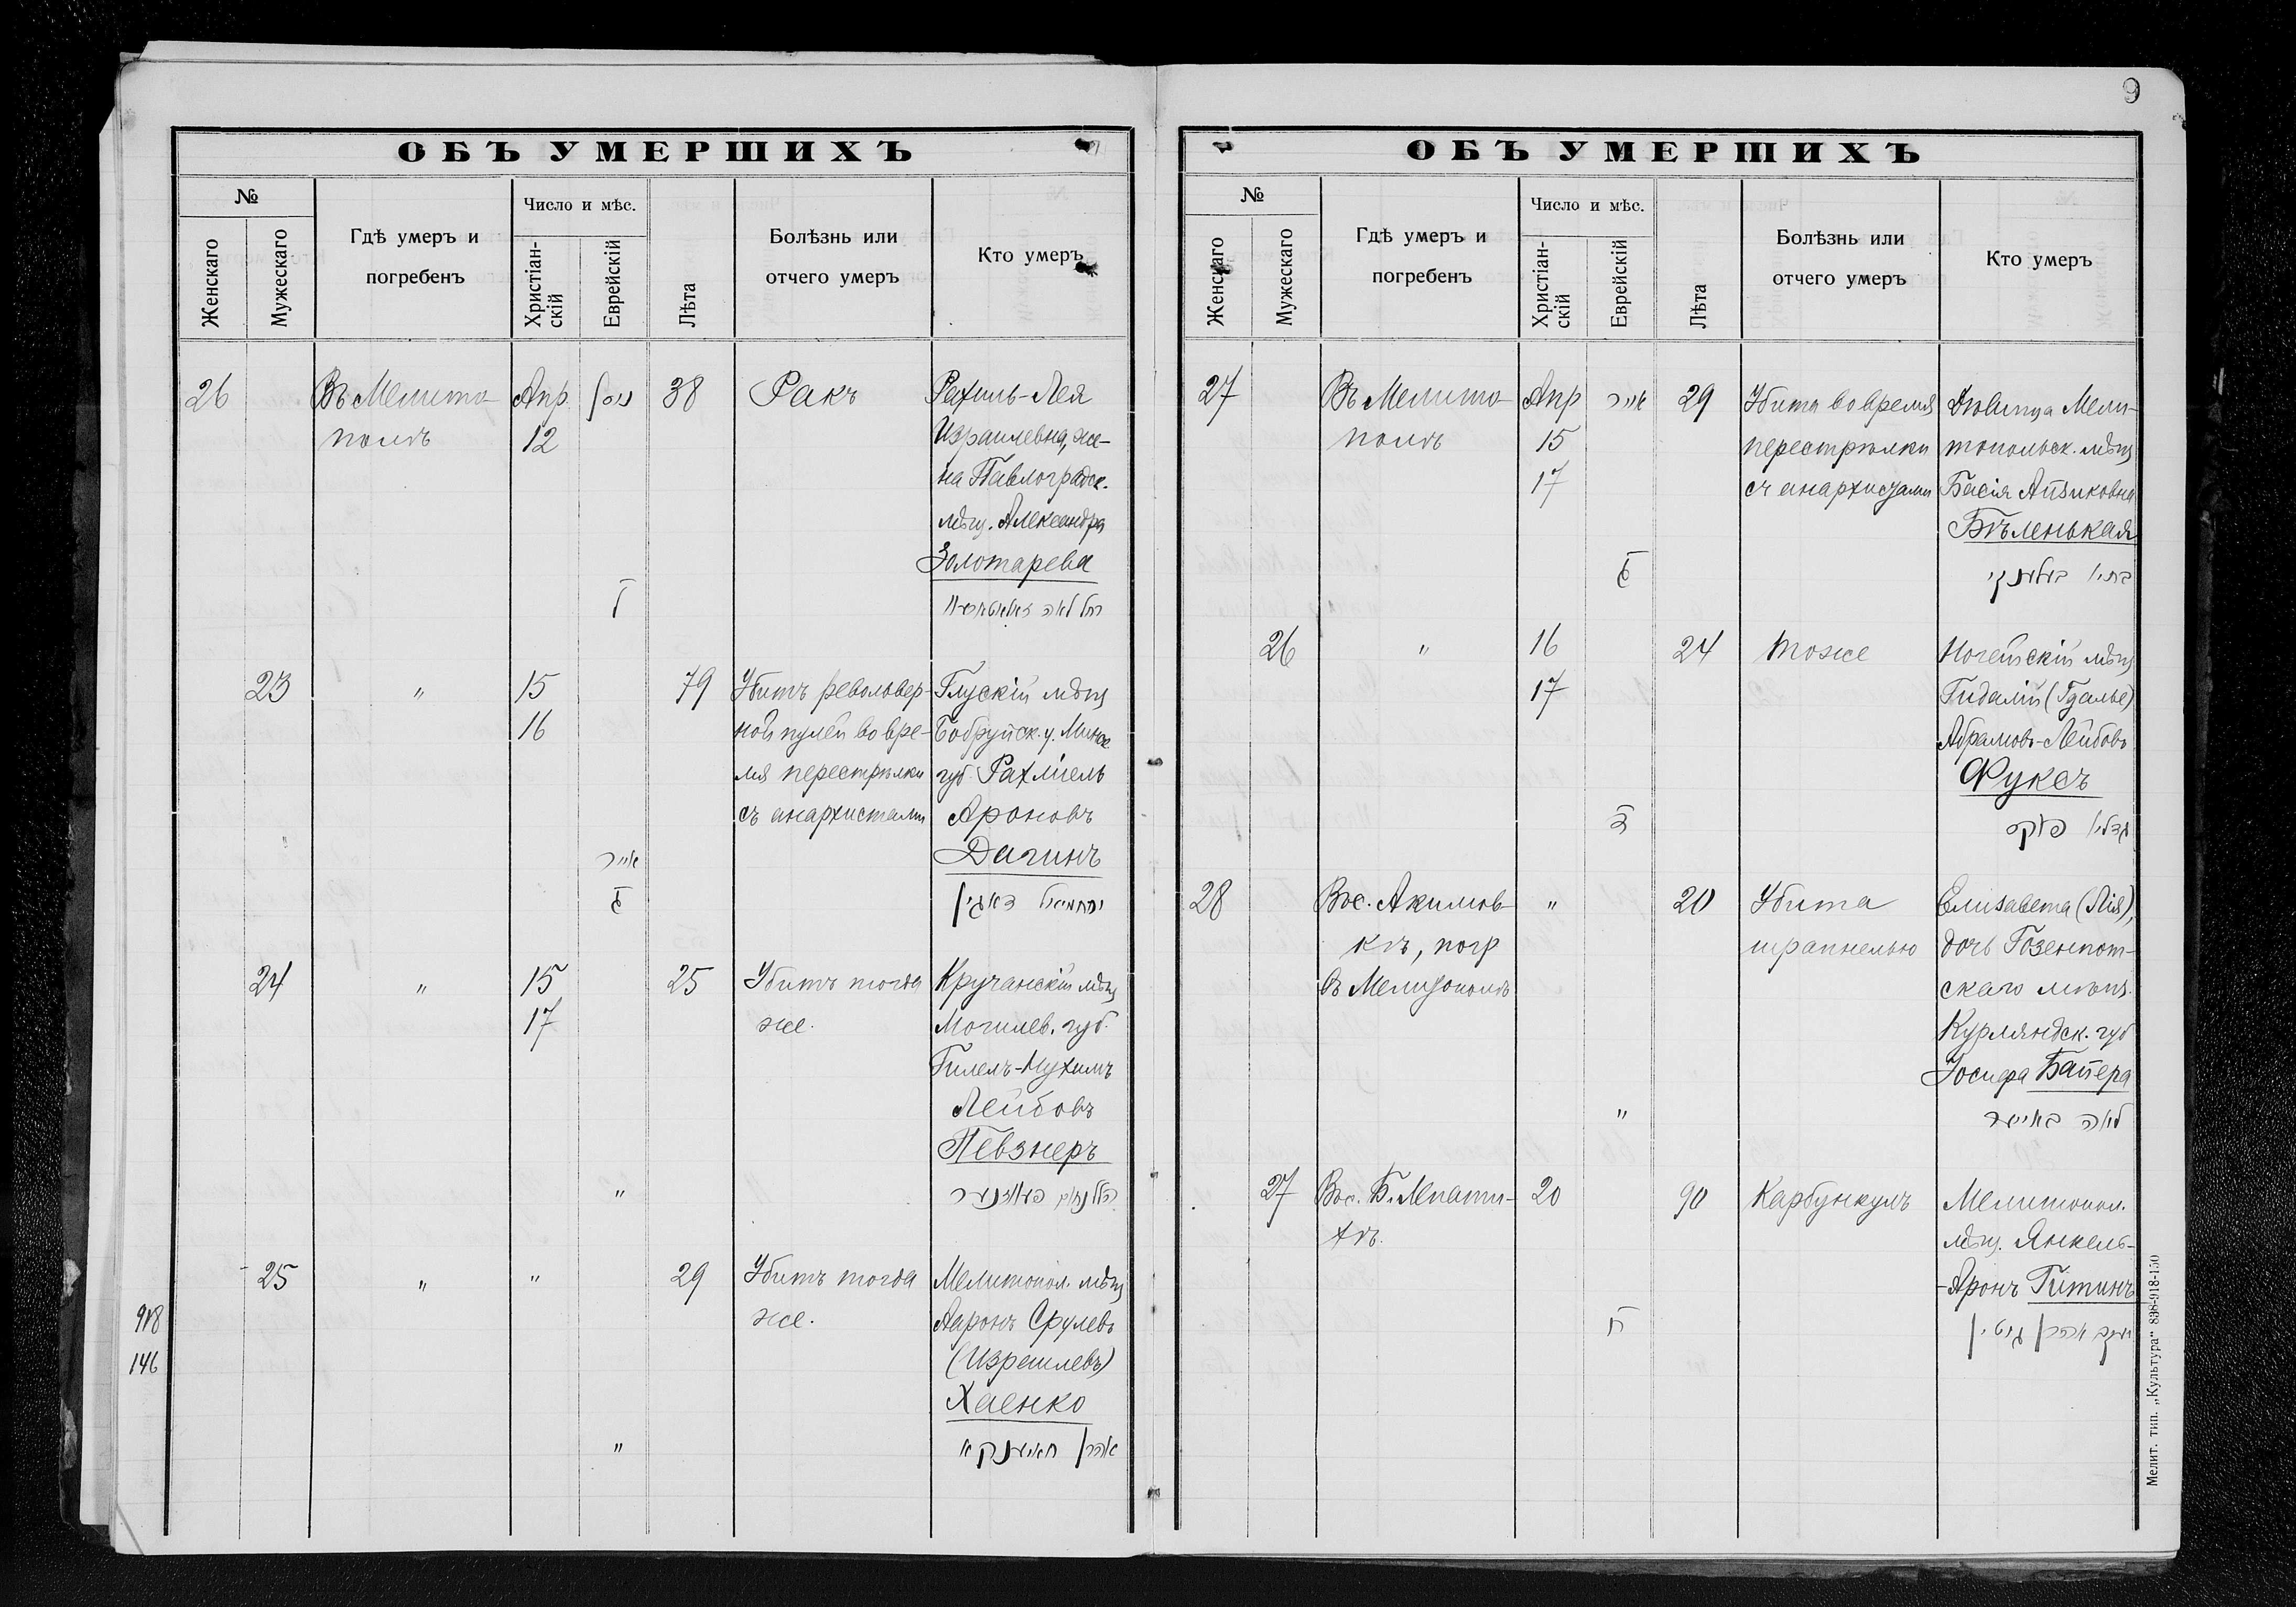 ОБЪ УМЕРШИХЪ
№
Женскаго
Мужескаго
Гдѣ умеръ и
погребенъ
Число и мѣс.
Христіан-
скій
Еврейскій
Лѣта
Болѣзнь или
отчего умеръ
Кто умеръ
26
Въ Мелито-
полѣ
Апр
12
ניסן
38
Ракъ
Рахиль-Лея
Израилевна, же-
на Павлоградск.
мѣщ. Александра
Золотарева
רחל לאה
23
"
15
16
79
Убитъ револьвер-
ной пулей во вре-
мя перестрѣлки
съ анархистами
Глускій мѣщ
Бобруйск. у. Минск
губ. Рахміель
Ароновъ
Дагинъ
אייר
ירחמיאל דאגין
24
"
15
17
25
Убитъ тогда
же.
Кручанскій мѣщ
Могилев. губ.
Гилелъ-Нухимъ
Лейбовъ
Певзнеръ
"
הלל נחום פעווזנער
25
"
"
29
Убитъ тогда
же.
Мелитопол. мѣщ
Ааронъ Срулевъ
(Израилевъ)
Хаенко
"
אהרן חאיענקא
918
146
9
ОБЪ УМЕРШИХЪ
№
Женскаго
Мужескаго
Гдѣ умеръ и
погребенъ
Число и мѣс.
Христіан-
скій
Еврейскій
Лѣта
Болѣзнь или
отчего умеръ
Кто умеръ
27
Въ Мелито-
полѣ
Апр
15
17
אייר
29
Убита во время
перестрѣлки
съ анархистами
Дѣвица Мели-
топольск. мѣщ
Басія Айзиковна
Бѣленькая
26
"
16
17
24
тоже
Ногейскій мѣщ
Гидалій (Гдалье)
Абрамовъ-Лейбовъ
Фуксъ
ג
גדליו פוקס
28
Въ с. Акимов-
кѣ, погр
въ Мелитополѣ
"
20
Убита
шрапнелью
Елизавета (Лія),
дочь Газенпот-
скаго мѣщ.
Курляндск. губ
Іосифа Байера
"
לאה באייער
27
Въ с. Б. Лепати-
хѣ.
20
90
Карбункулъ
Мелитопол.
мѣщ. Янкель-
-Аронъ Гитинъ
ח
יעקב אהרן גיטין
Мелит. тип. „Культура“ 838-918-150